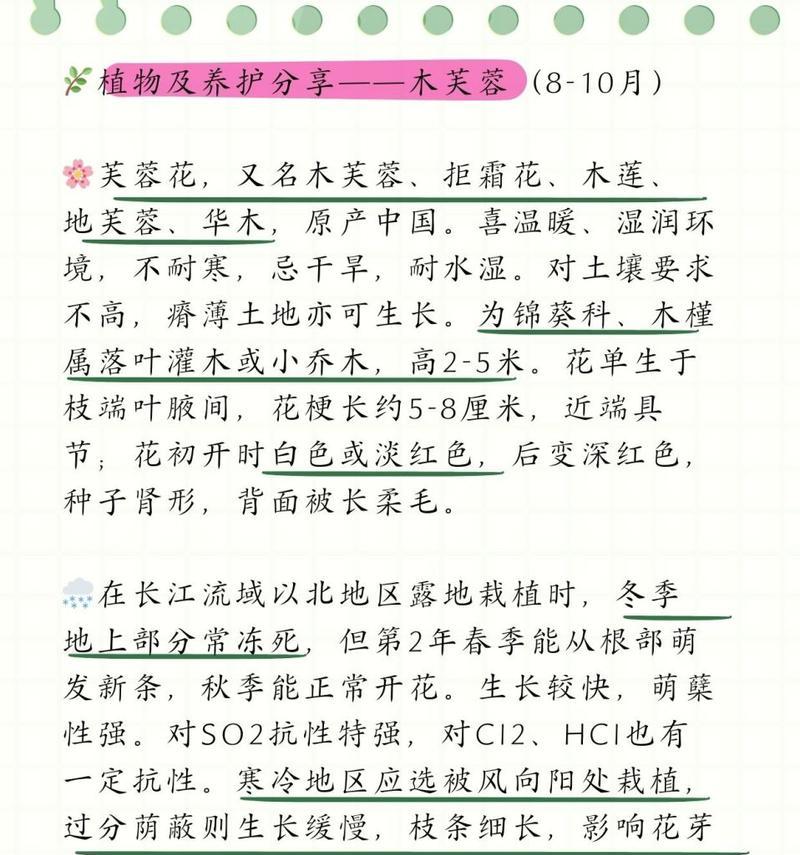 植物及养护分享——木芙蓉(8-10月)
芙蓉花，又名木芙蓉、拒霜花、木莲、
地芙蓉、华木，原产中国。喜温暖、湿润环
境，不耐寒，忌干旱，耐水湿。对土壤要求
不高，瘠薄土地亦可生长。为锦葵科、木槿
属落叶灌木或小乔木，高2-5米。花单生于
枝端叶腋间，花梗长约5-8厘米，近端具
节；花初开时白色或淡红色，后变深红色，
种子肾形，背面被长柔毛。
在长江流域以北地区露地栽植时，冬季
地上部分常冻死，但第2年春季能从根部萌
发新条，秋季能正常开花。生长较快，萌蘖
性强。对SO2抗性特强，对Cl2、HCl也有
一定抗性。寒冷地区应选被风向阳处栽植，
过分荫蔽则生长缓慢，枝条细长，影响花芽